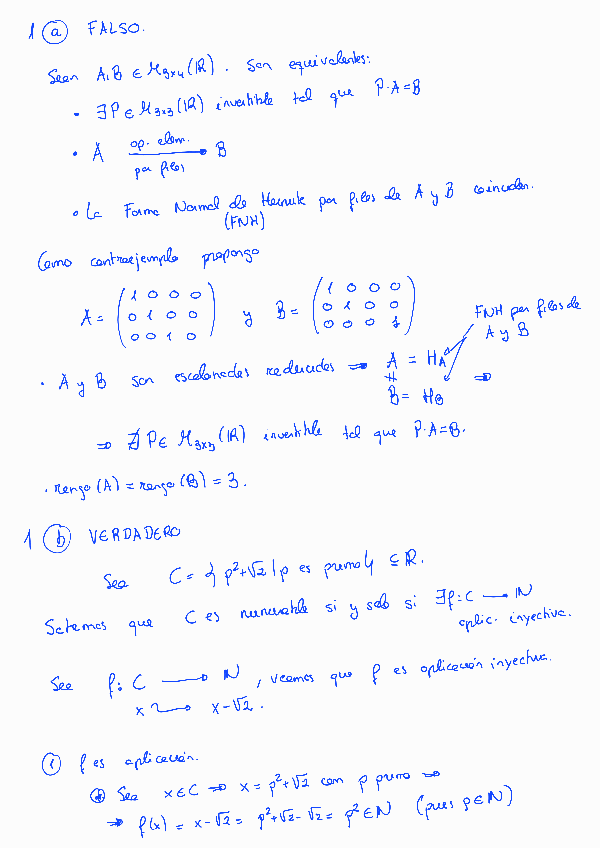 1 ⓐ FALSO.
Sean A, B ∈ M₃ₓ₄(ℝ). Son equivalentes:
• ∃ P ∈ M₃ₓ₃(ℝ) invertible tal que P·A = B
• A → B
op. elem.
por filas
• La Forma Normal de Hermite por filas de A y B coinciden.
(FNH)
Como contraejemplo propongo
A = (1 0 0 0
0 1 0 0
0 0 1 0) y B = (1 0 0 0
0 1 0 0
0 0 0 1)
FNH por filas de
A y B
• A y B son escalonadas reducidas ⇒ A = H_A
≠
B = H_B ⇒
⇒ ∄ P ∈ M₃ₓ₃(ℝ) invertible tal que P·A = B.
• rango (A) = rango (B) = 3.
1 ⓑ VERDADERO
Sea C = { p² + √2 | p es primo } ⊆ ℝ.
Sabemos que C es numerable si y solo si ∃ f: C → ℕ
aplic. inyectiva.
Sea f: C → ℕ, veamos que f es aplicación inyectiva.
x ↦ x - √2.
① f es aplicación.
⊛ Sea x ∈ C ⇒ x = p² + √2 con p primo ⇒
⇒ f(x) = x - √2 = p² + √2 - √2 = p² ∈ ℕ (pues p ∈ ℕ)